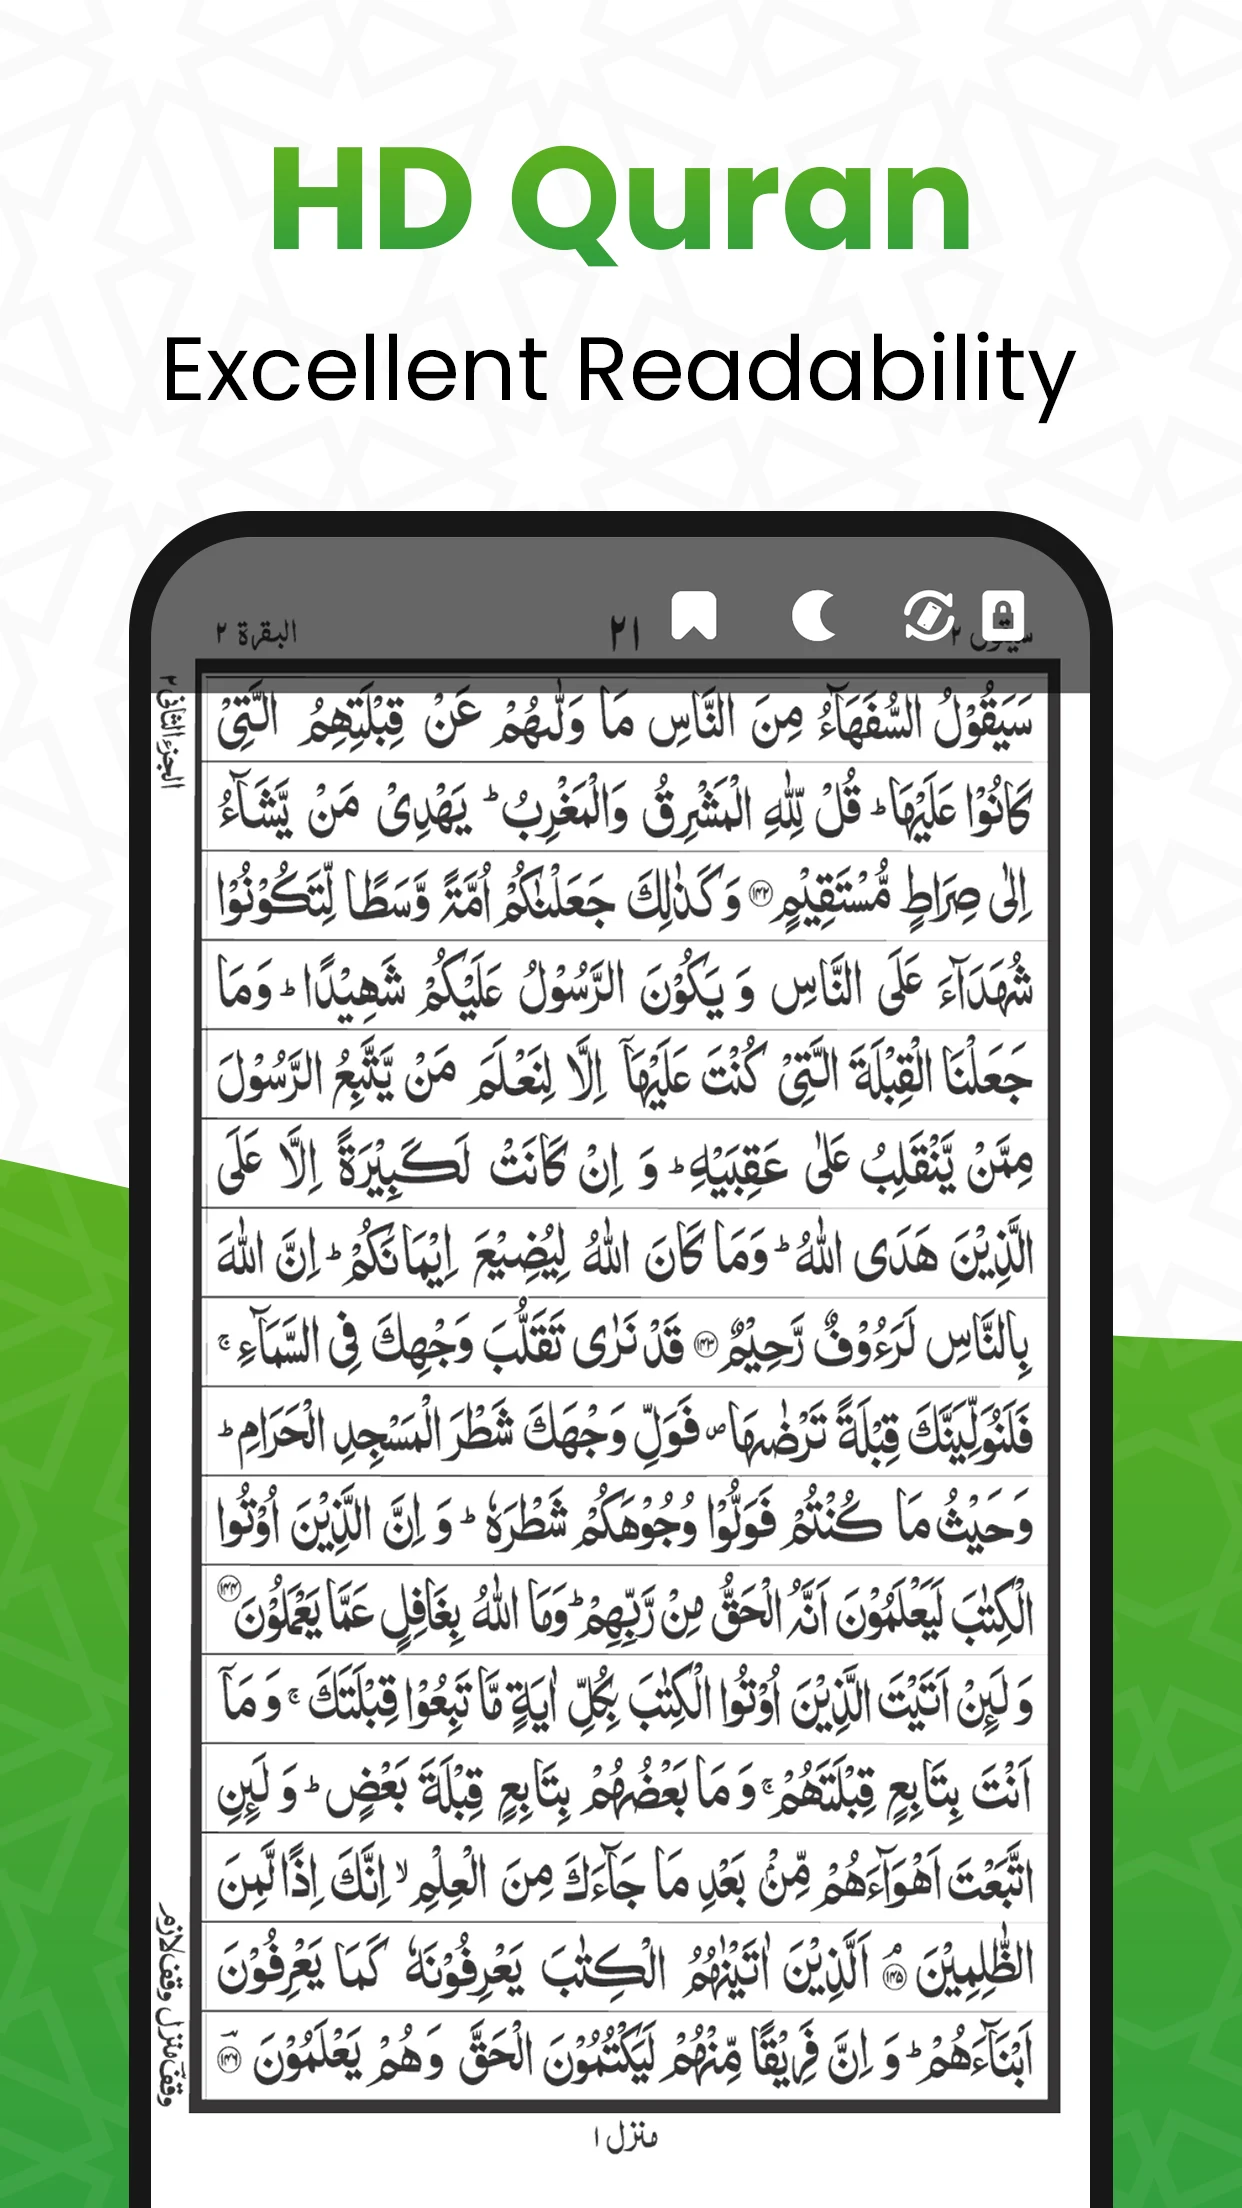 HD Quran
Excellent Readability
البقرة ٢
٢١
الجزء الثانی ٢
سَيَقُوْلُ السُّفَهَآءُ مِنَ النَّاسِ مَا وَلّٰىهُمْ عَنْ قِبْلَتِهِمُ الَّتِىْ
كَانُوْا عَلَيْهَا ؕ قُلْ لِّلّٰهِ الْمَشْرِقُ وَالْمَغْرِبُ ؕ يَهْدِىْ مَنْ يَّشَآءُ
اِلٰى صِرَاطٍ مُّسْتَقِيْمٍ ۝۱۴۲ وَكَذٰلِكَ جَعَلْنٰكُمْ اُمَّةً وَّسَطًا لِّتَكُوْنُوْا
شُهَدَآءَ عَلَى النَّاسِ وَ يَكُوْنَ الرَّسُوْلُ عَلَيْكُمْ شَهِيْدًا ؕ وَمَا
جَعَلْنَا الْقِبْلَةَ الَّتِىْ كُنْتَ عَلَيْهَآ اِلَّا لِنَعْلَمَ مَنْ يَّتَّبِعُ الرَّسُوْلَ
مِمَّنْ يَّنْقَلِبُ عَلٰى عَقِبَيْهِ ؕ وَ اِنْ كَانَتْ لَكَبِيْرَةً اِلَّا عَلَى
الَّذِيْنَ هَدَى اللّٰهُ ؕ وَمَا كَانَ اللّٰهُ لِيُضِيْعَ اِيْمَانَكُمْ ؕ اِنَّ اللّٰهَ
بِالنَّاسِ لَرَءُوْفٌ رَّحِيْمٌ ۝۱۴۳ قَدْ نَرٰى تَقَلُّبَ وَجْهِكَ فِى السَّمَآءِ ۚ
فَلَنُوَلِّيَنَّكَ قِبْلَةً تَرْضٰىهَا ۪ فَوَلِّ وَجْهَكَ شَطْرَ الْمَسْجِدِ الْحَرَامِ ؕ
وَحَيْثُ مَا كُنْتُمْ فَوَلُّوْا وُجُوْهَكُمْ شَطْرَهٗ ؕ وَ اِنَّ الَّذِيْنَ اُوْتُوا
الْكِتٰبَ لَيَعْلَمُوْنَ اَنَّهُ الْحَقُّ مِنْ رَّبِّهِمْ ؕ وَمَا اللّٰهُ بِغَافِلٍ عَمَّا يَعْمَلُوْنَ ۝۱۴۴
وَ لَئِنْ اَتَيْتَ الَّذِيْنَ اُوْتُوا الْكِتٰبَ بِكُلِّ اٰيَةٍ مَّا تَبِعُوْا قِبْلَتَكَ ۚ وَ مَآ
اَنْتَ بِتَابِعٍ قِبْلَتَهُمْ ۚ وَ مَا بَعْضُهُمْ بِتَابِعٍ قِبْلَةَ بَعْضٍ ؕ وَ لَئِنِ
اتَّبَعْتَ اَهْوَآءَهُمْ مِّنْۢ بَعْدِ مَا جَآءَكَ مِنَ الْعِلْمِ ۙ اِنَّكَ اِذًا لَّمِنَ
الظّٰلِمِيْنَ ۘ ۝۱۴۵ اَلَّذِيْنَ اٰتَيْنٰهُمُ الْكِتٰبَ يَعْرِفُوْنَهٗ كَمَا يَعْرِفُوْنَ
اَبْنَآءَهُمْ ؕ وَ اِنَّ فَرِيْقًا مِّنْهُمْ لَيَكْتُمُوْنَ الْحَقَّ وَهُمْ يَعْلَمُوْنَ ۝۱۴۶
وقف منزل وقف لازم
منزل ١